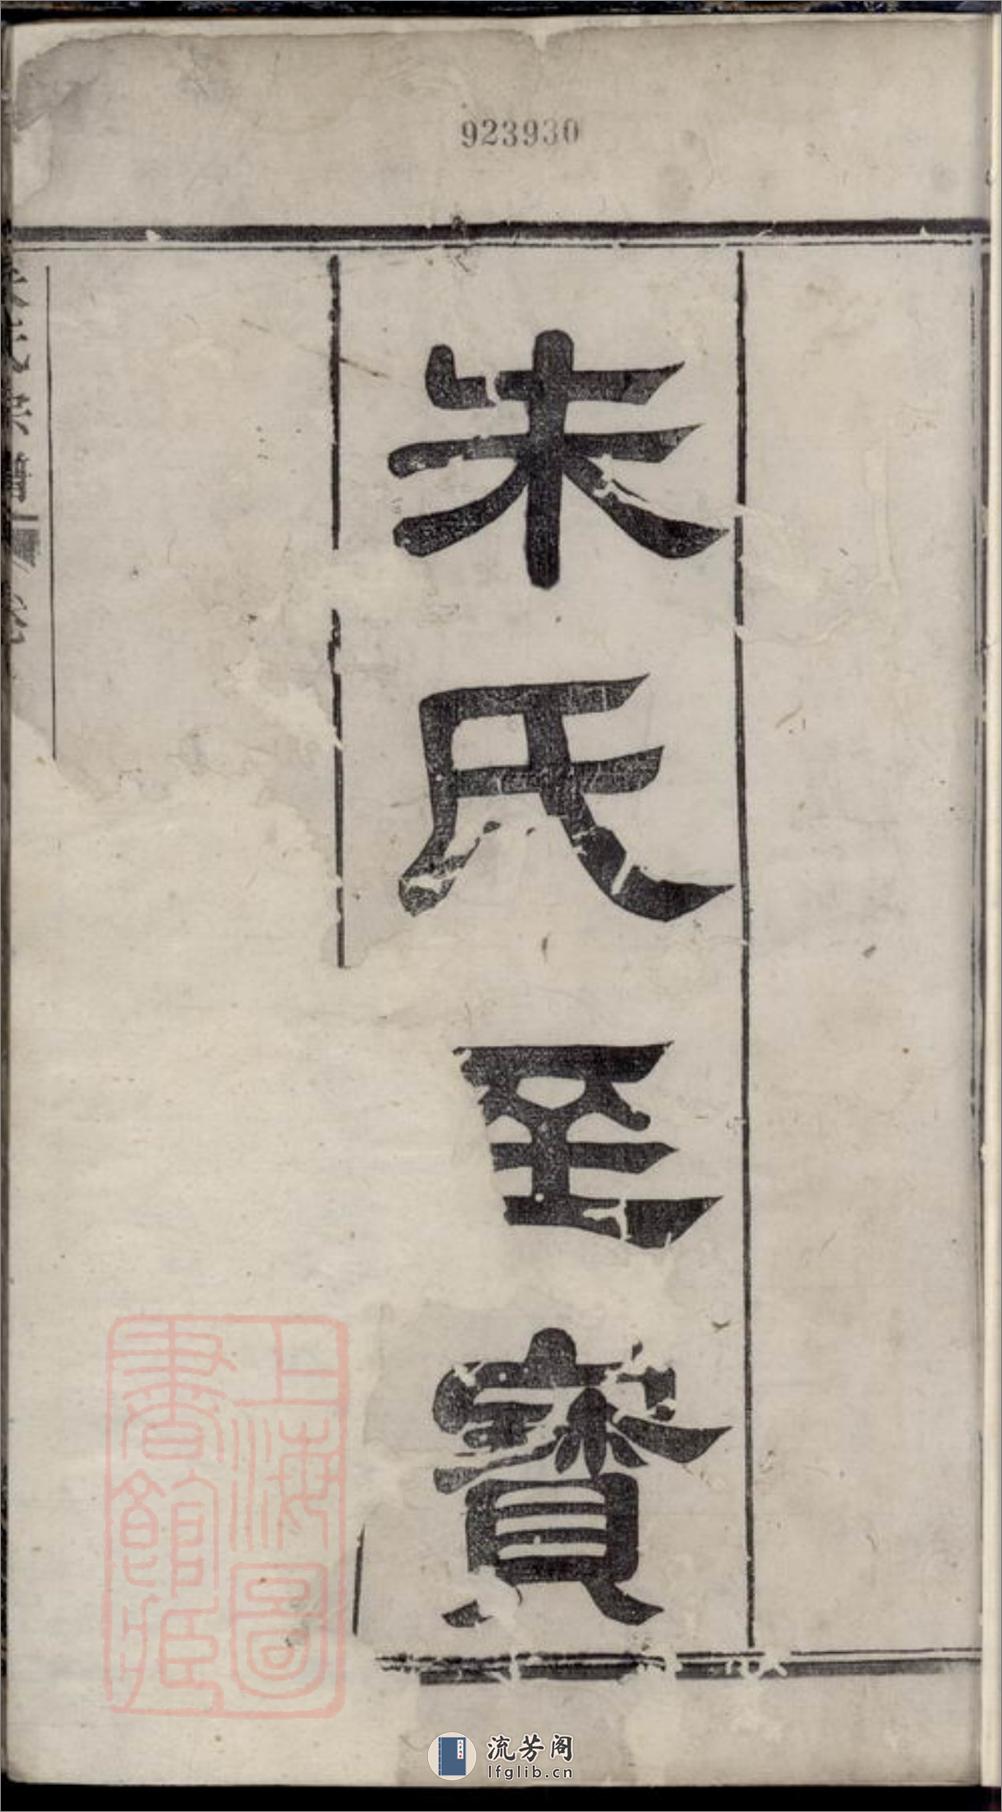 923930
朱氏至寶
上海圖
書館藏
流芳阁
lfglib.cn